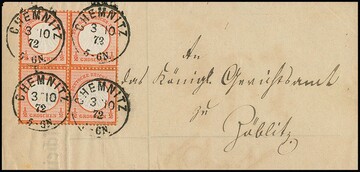 CHEMNITZ
3 10
72
5-6N.
CHEMNITZ
3 10
72
5-6N.
CHEMNITZ
3 10
72
CHEMNITZ
3 10
72
An
das Königl. Gerichtsamt
zu
Zöblitz